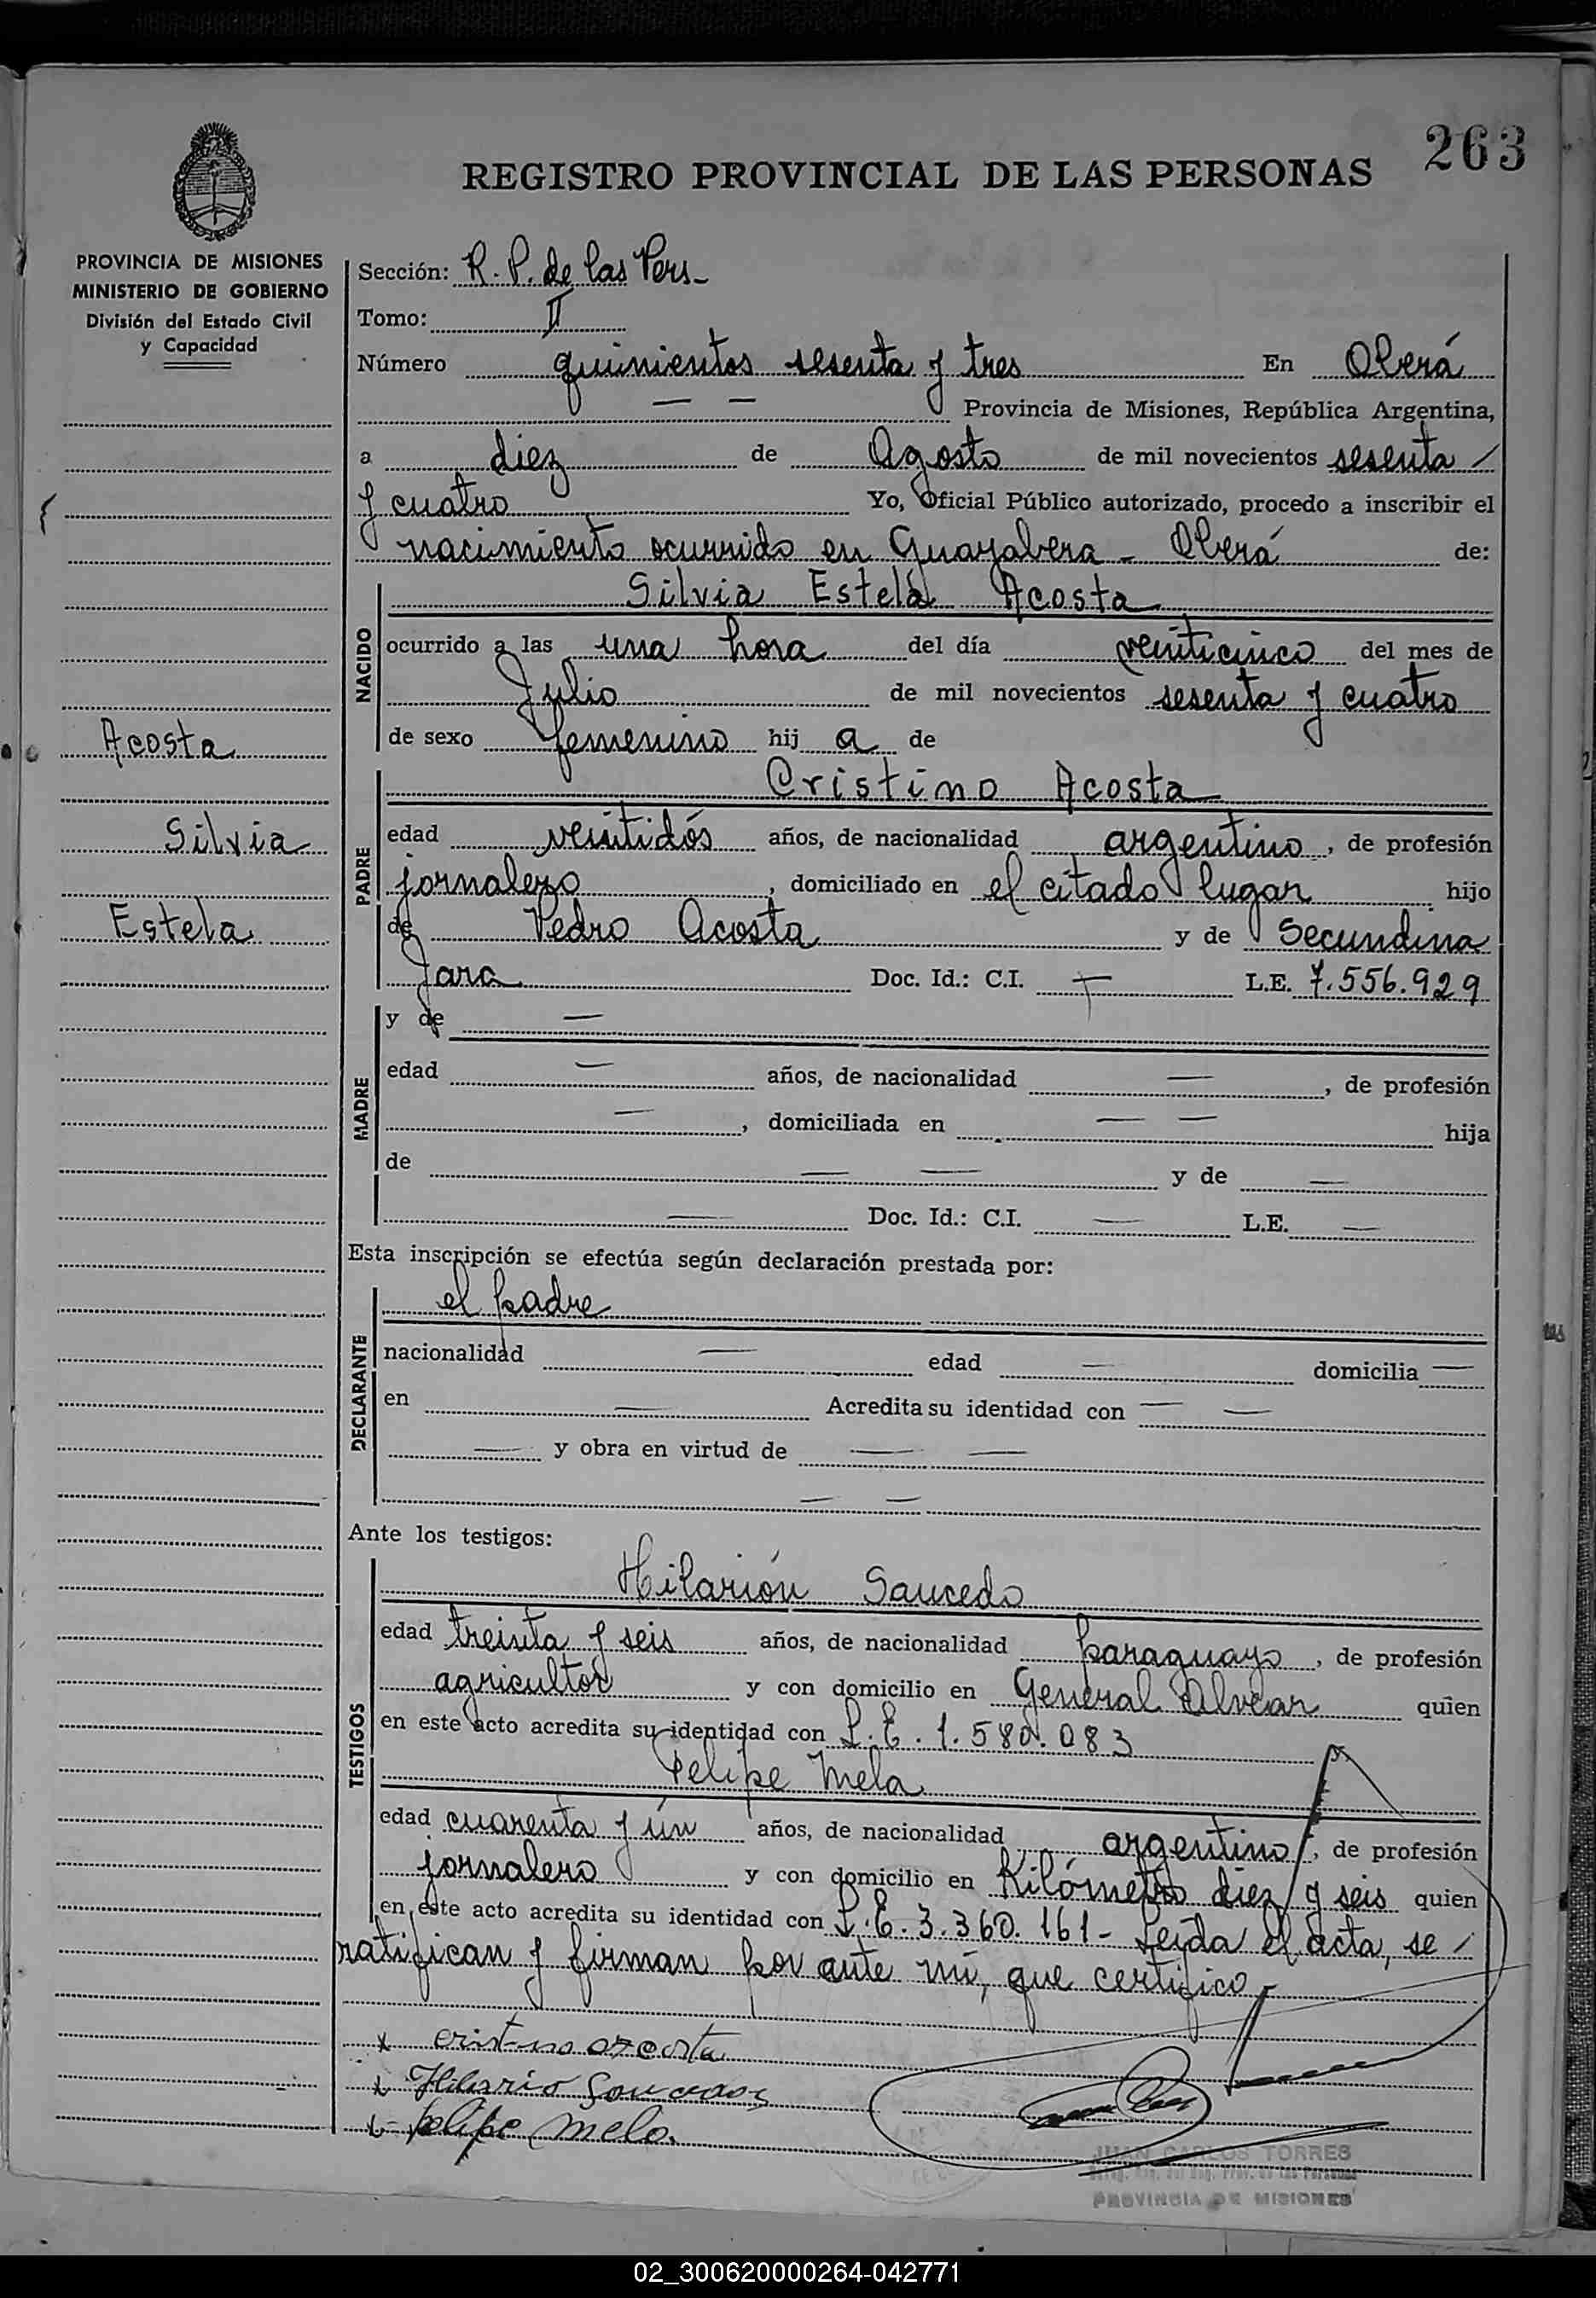 263
REGISTRO PROVINCIAL DE LAS PERSONAS
PROVINCIA DE MISIONES
MINISTERIO DE GOBIERNO
División del Estado Civil
y Capacidad
Sección: R. P. de las Pers-
Tomo: II
Número quinientos sesenta y tres En Oberá
— — Provincia de Misiones, República Argentina,
a diez de Agosto de mil novecientos sesenta /
y cuatro Yo, Oficial Público autorizado, procedo a inscribir el
nacimiento ocurrido en Guayabera - Oberá de:
NACIDO
Silvia Estela Acosta
ocurrido a las una hora del día veinticinco del mes de
Julio de mil novecientos sesenta y cuatro
de sexo femenino hij a de
Acosta
Silvia
Estela
PADRE
Cristino Acosta
edad veintidós años, de nacionalidad argentino, de profesión
jornalero, domiciliado en el citado lugar hijo
de Pedro Acosta y de Secundina
Jara Doc. Id.: C.I. — L.E. 7.556.929
MADRE
y de —
edad — años, de nacionalidad —, de profesión
—, domiciliada en — — hija
de — — y de —
— Doc. Id.: C.I. — L.E. —
Esta inscripción se efectúa según declaración prestada por:
DECLARANTE
el padre
nacionalidad — edad — domicilia —
en — Acredita su identidad con — —
— y obra en virtud de — —
— —
Ante los testigos:
TESTIGOS
Hilarión Saucedo
edad treinta y seis años, de nacionalidad paraguayo, de profesión
agricultor y con domicilio en General Alvear quien
en este acto acredita su identidad con L.E. 1.580.083
Felipe Mela
edad cuarenta y ún años, de nacionalidad argentino, de profesión
jornalero y con domicilio en Kilómetro diez y seis quien
en este acto acredita su identidad con L.E. 3.360.161- Leída el acta, se /
ratifican y firman por ante mí, que certifico
x cristino
x Hilario
x felipe melo.
JUAN CARLOS TORRES
PROVINCIA DE MISIONES
02_300620000264-042771